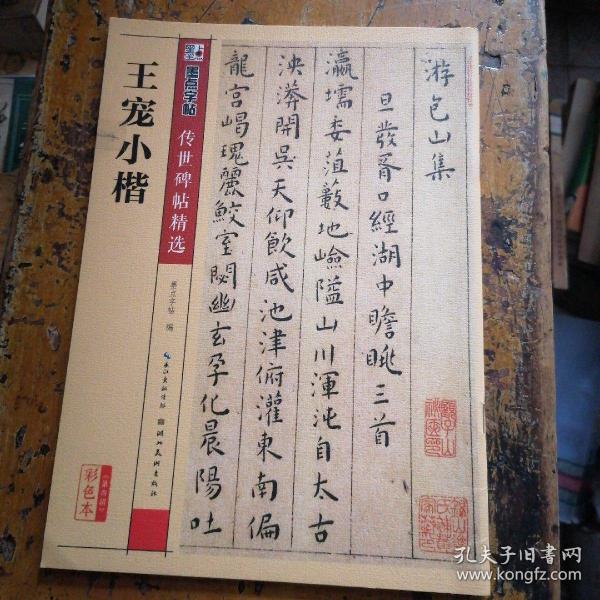 墨点字帖
王宠小楷
传世碑帖精选
墨点字帖 编
长江出版传媒
湖北美术出版社
彩色本
游包山集
旦發胥口經湖中瞻眺三首
瀛壖委菹藪地嶮隘山川渾沌自太古
泱漭開吳天仰飲咸池津俯灌東南偏
龍宮嵑瑰麗鮫室閟幽玄孕化晨陽吐
孔夫子旧书网
www.kongfz.com